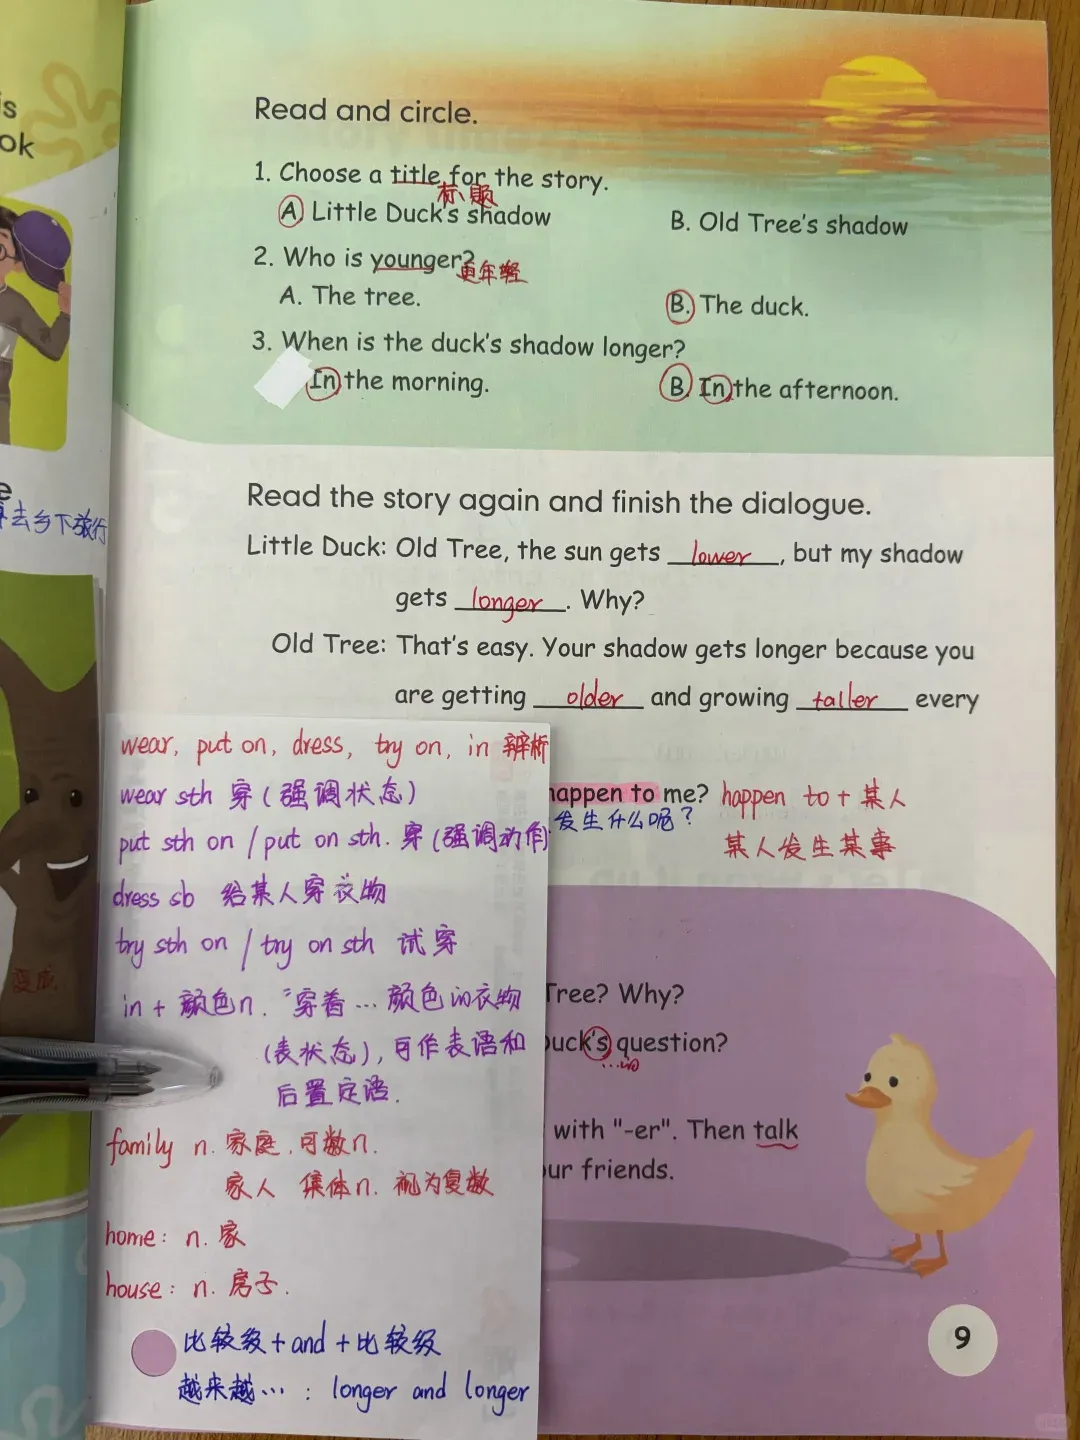 is
ok
e
去乡下旅行
变成
Read and circle.
1. Choose a title for the story.
标题
A. Little Duck's shadow B. Old Tree's shadow
2. Who is younger?
更年轻
A. The tree. B. The duck.
3. When is the duck's shadow longer?
In the morning. B. In the afternoon.
Read the story again and finish the dialogue.
Little Duck: Old Tree, the sun gets lower, but my shadow
gets longer. Why?
Old Tree: That's easy. Your shadow gets longer because you
are getting older and growing taller every
happen to me? happen to + 某人
发生什么呢?
某人发生某事
Tree? Why?
Duck's question?
...的
with "-er". Then talk
our friends.
wear, put on, dress, try on, in 辨析
wear sth 穿(强调状态)
put sth on / put on sth. 穿(强调动作)
dress sb 给某人穿衣物
try sth on / try on sth 试穿
in + 颜色n. "穿着...颜色的衣物
(表状态),可作表语和
后置定语.
family n. 家庭.可数n.
家人 集体n. 视为复数
home: n. 家
house: n. 房子.
比较级+and+比较级
越来越...: longer and longer
9